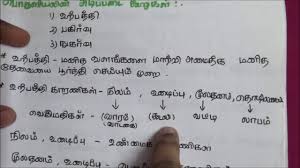 பொருளியலின் அடிப்படை வேறுகள்:
1) உற்பத்தி
2) பகிர்வு
3) நுகர்வு
* உற்பத்தி - மனித வளங்களை மாற்றி அமைத்து மனித
தேவையை பூர்த்தி செய்யும் முறை.
* உற்பத்தி காரணிகள் - நிலம், உழைப்பு, மூலதனம், தொழில்
வெகுமதிகள் - (வாரம்) (கூலி) வட்டி லாபம்
வாடகை
நிலம், உழைப்பு - உண்மை
மூலதனம்,